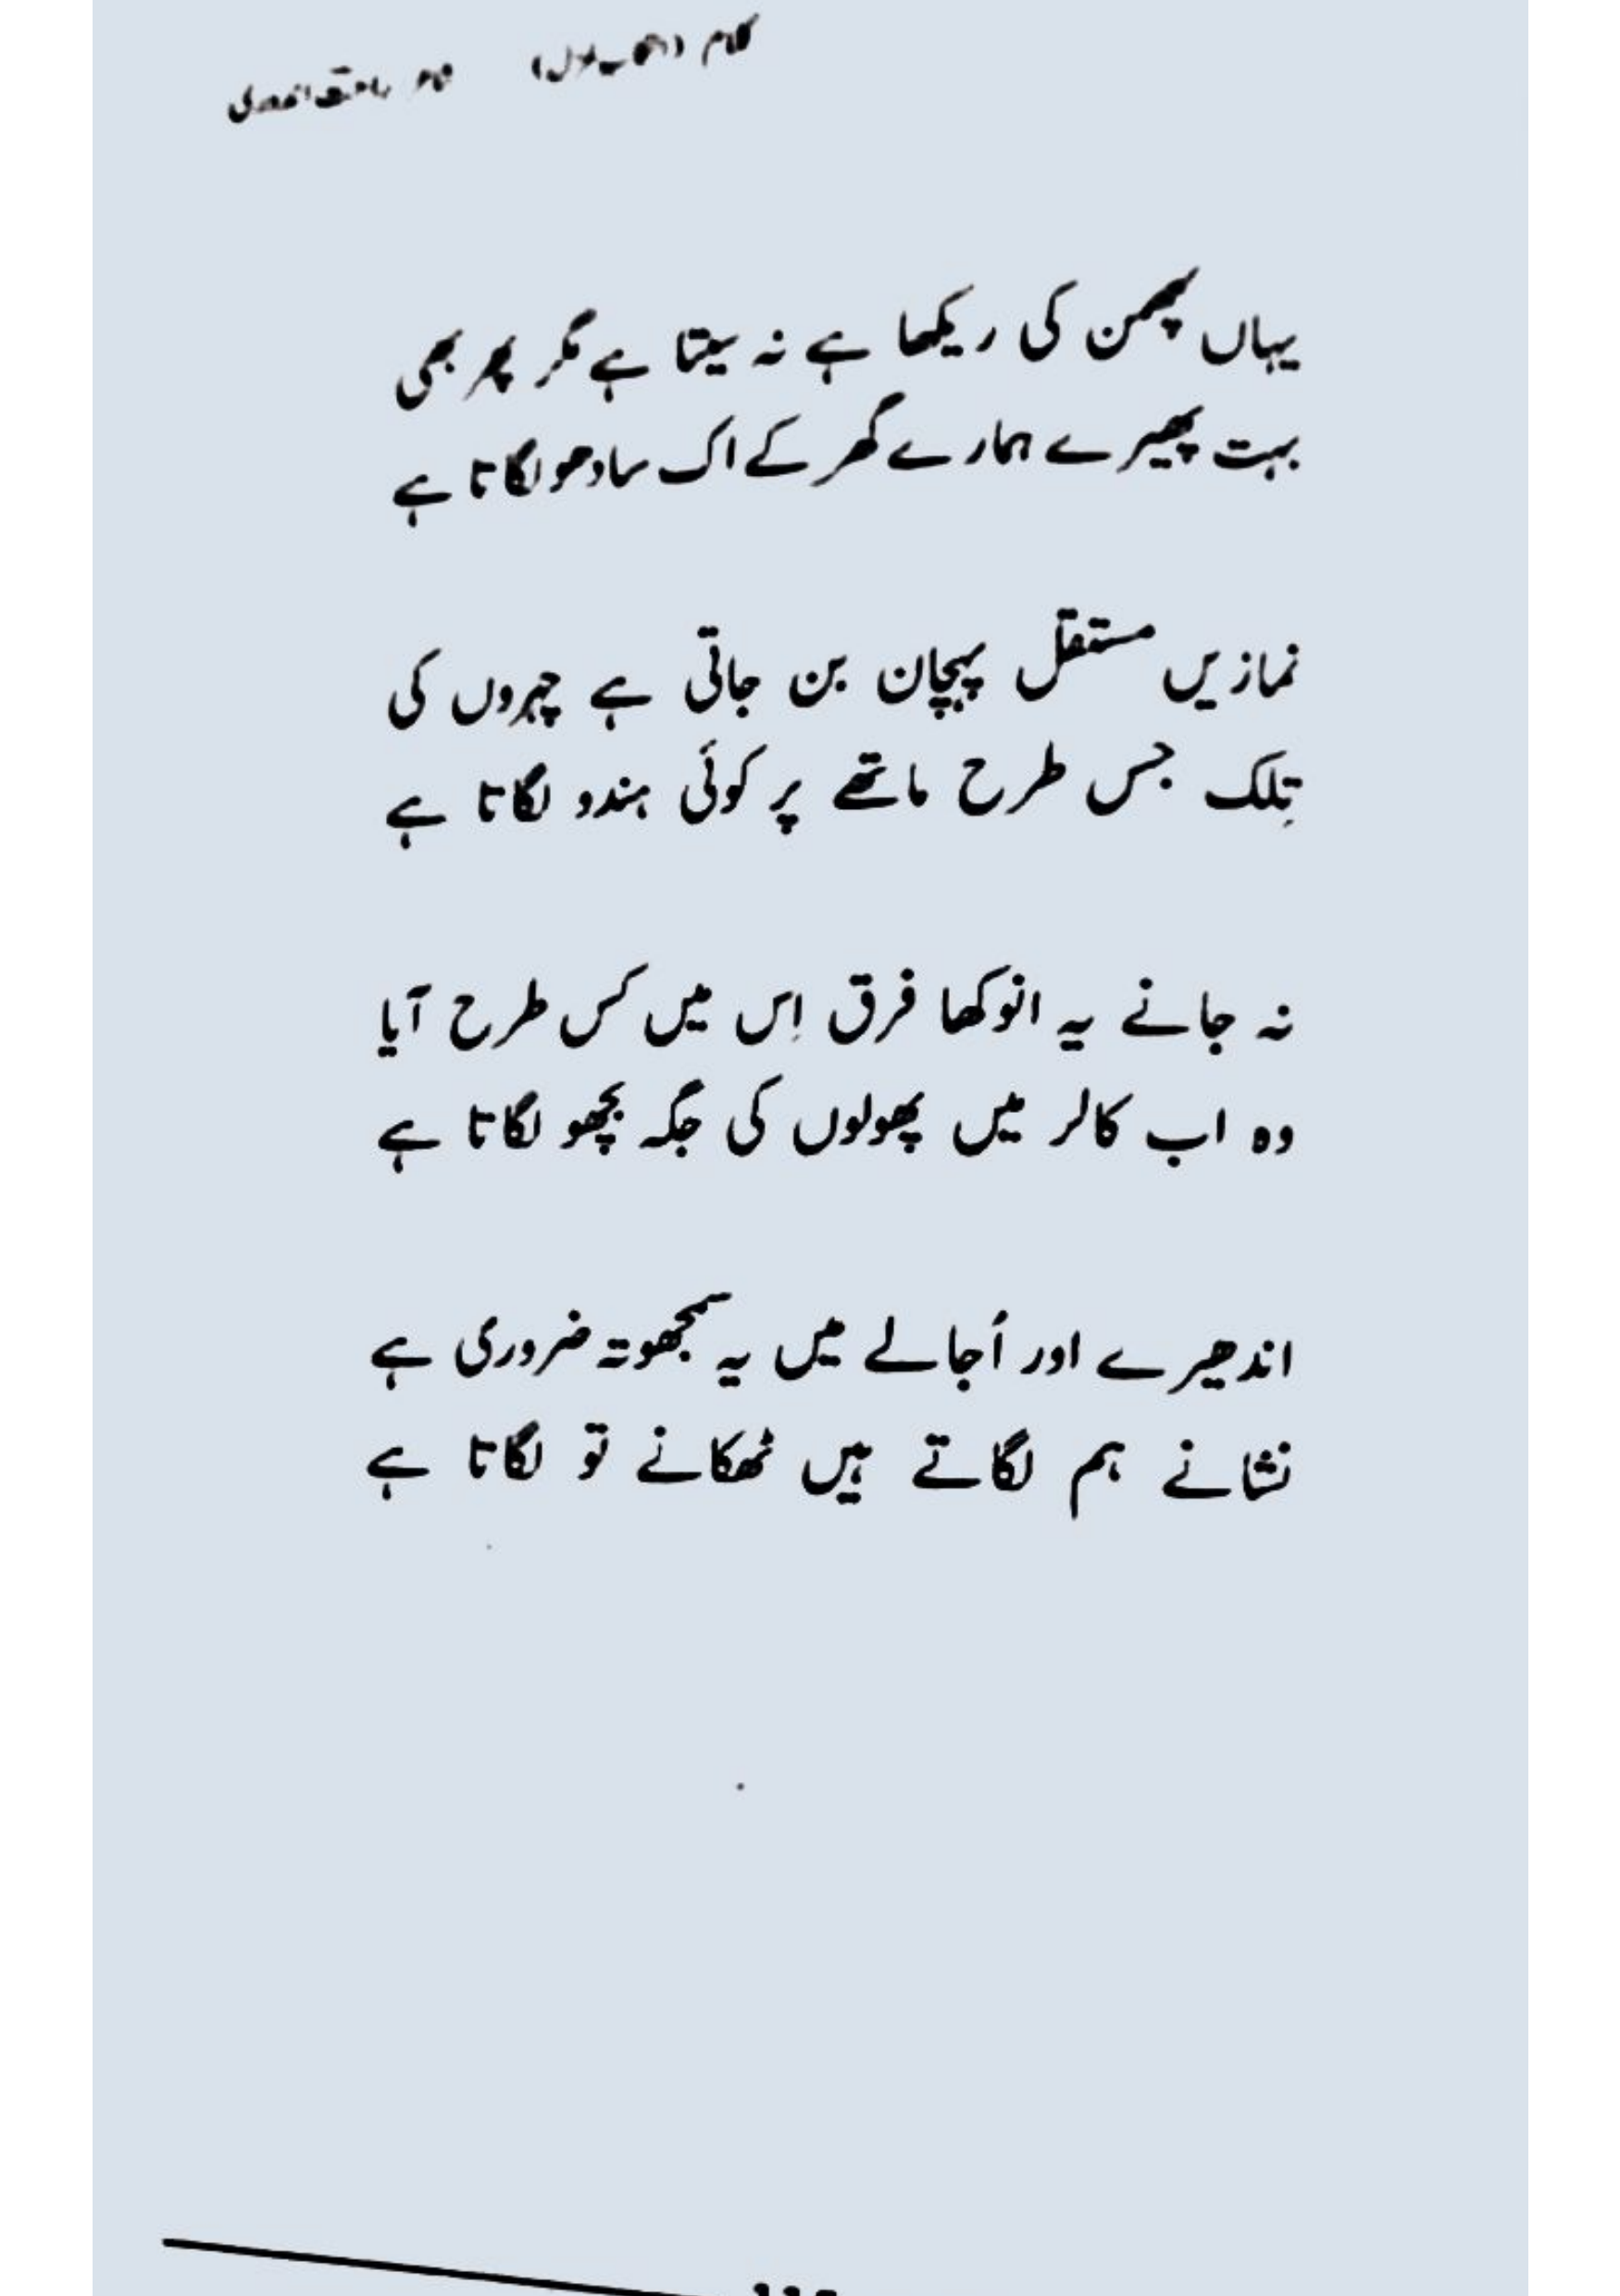 کلام
یہاں لچھمن کی ریکھا ہے نہ سیتا ہے مگر پھر بھی
بہت پھیرے ہمارے گھر کے اک سادھو لگاتا ہے
نمازیں مستقل پہچان بن جاتی ہے چہروں کی
تِلک جس طرح ماتھے پر کوئی ہندو لگاتا ہے
نہ جانے یہ انوکھا فرق اِس میں کس طرح آیا
وہ اب کالر میں پھولوں کی جگہ بچھو لگاتا ہے
اندھیرے اور اُجالے میں یہ سمجھوتہ ضروری ہے
نشانے ہم لگاتے ہیں ٹھکانے تو لگاتا ہے